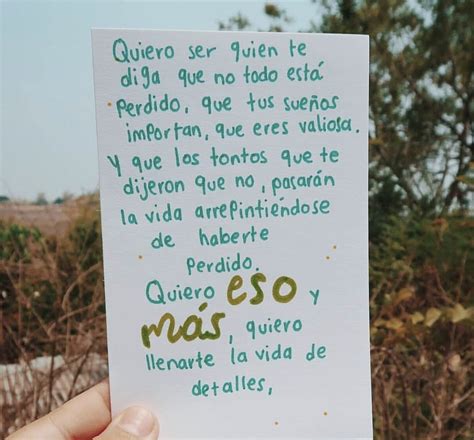 Quiero ser quien te
diga que no todo está
perdido, que tus sueños
importan, que eres valiosa.
Y que los tontos que te
dijeron que no, pasarán
la vida arrepintiéndose
de haberte
perdido.
Quiero eso y
más, quiero
llenarte la vida de
detalles,